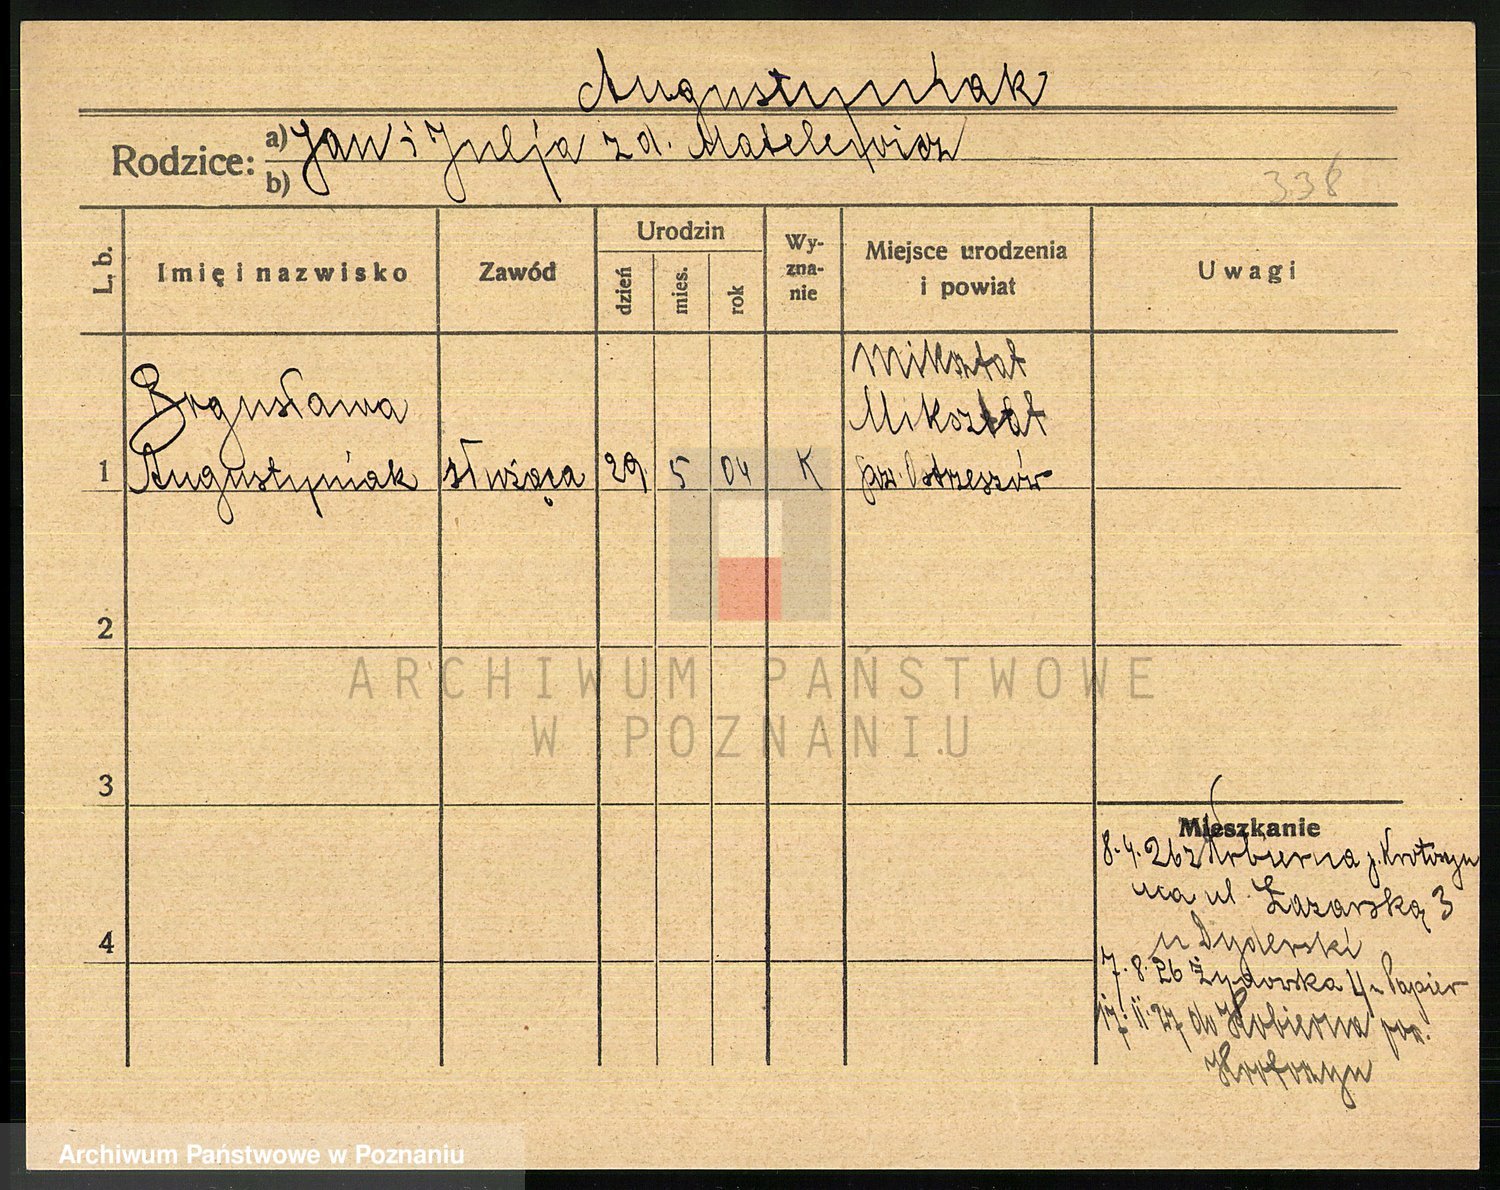 Augustyniak
Rodzice: a) Jan i Julja z d. Matelewicz
b)
338
L. b.
Imię i nazwisko
Zawód
Urodzin
dzień
mies.
rok
Wy-
zna-
nie
Miejsce urodzenia
i powiat
Uwagi
Mikstat
Bogusława
Mikstat
1 Augustyniak służąca 29. 5 04 K pow. Ostrzeszów
2
ARCHIWUM PAŃSTWOWE
W POZNANIU
3
Mieszkanie
8.4.26 z Kobierna p. Krotoszyn
na ul. Łazarską 3
4
u Dyderski
7.8.26 Żydowska 4 u Papier
17.II.27 do Kobierna pow.
Krotoszyn
Archiwum Państwowe w Poznaniu